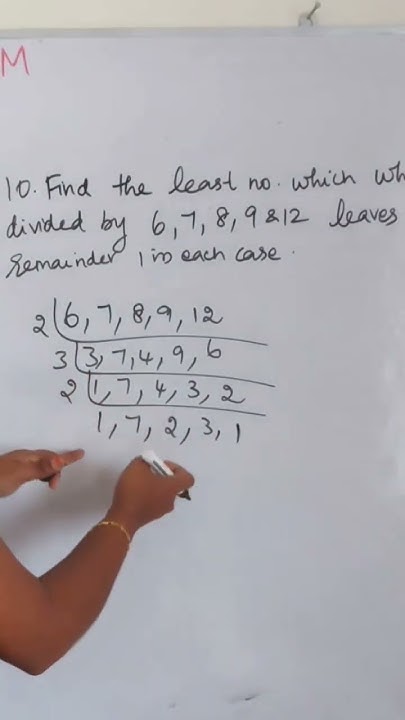 M
10. Find the least no. which wh
divided by 6, 7, 8, 9 & 12 leaves
remainder 1 in each case.
2 6, 7, 8, 9, 12
3 3, 7, 4, 9, 6
2 1, 7, 4, 3, 2
1, 7, 2, 3, 1